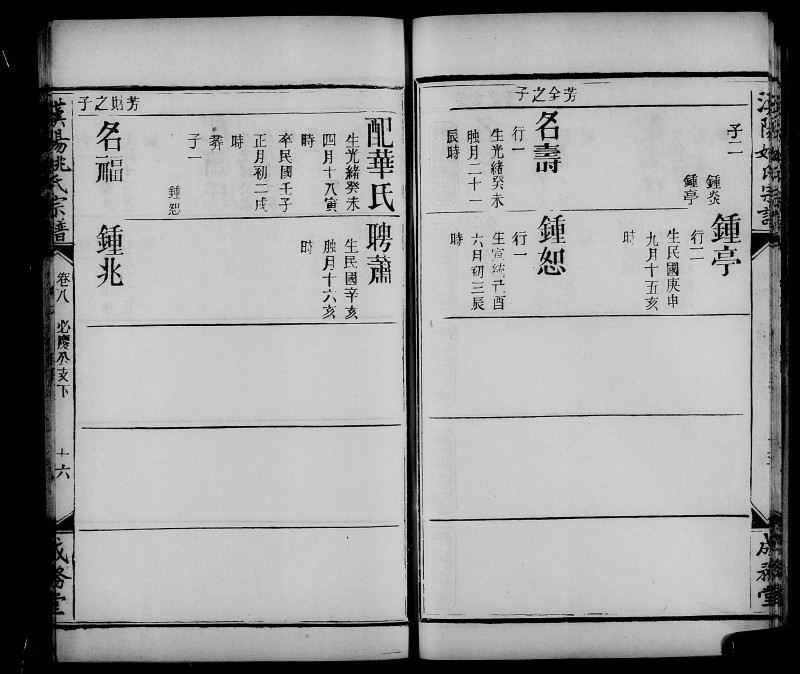 漢陽姚氏宗譜
成務堂
子二
鍾炎
鍾亭
芳全之子
名壽
行一
生光緒癸未
臘月二十一
辰時
鍾亭
行二
生民國庚申
九月十五亥
時
鍾恕
行一
生宣統己酉
六月初三辰
時
配華氏
生光緒癸未
四月十八寅
時
卒民國壬子
正月初二戌
時
葬
子一
鍾恕
芳財之子
名福
聘蕭
生民國辛亥
臘月十六亥
時
鍾兆
漢陽姚氏宗譜
卷八
必慶公支下
十六
成務堂